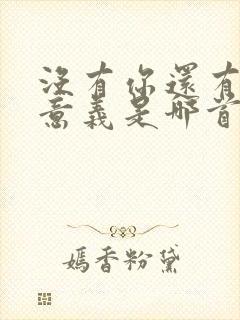 沒有你還有
意義是哪首
媽香粉黛